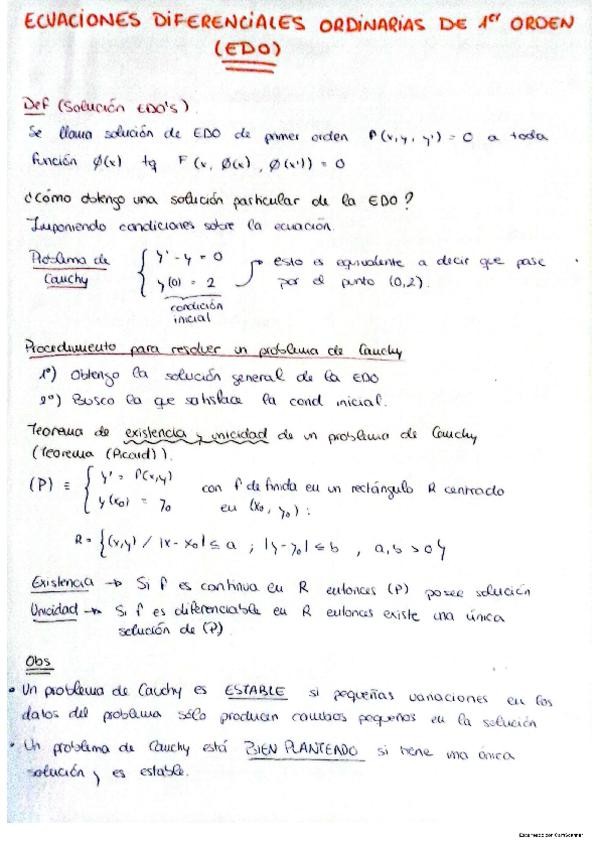 ECUACIONES DIFERENCIALES ORDINARIAS DE 1er ORDEN
(EDO)
Def (Solución EDO's).
Se llama solución de EDO de primer orden F(x,y,y') = 0 a toda
función Ø(x) tq F(x, Ø(x), Ø(x')) = 0
¿Cómo obtengo una solución particular de la EDO?
Imponiendo condiciones sobre la ecuación.
Problema de Cauchy { y' - y = 0
y(0) = 2
condición inicial
→ esto es equivalente a decir que pase
por el punto (0,2).
Procedimiento para resolver un problema de Cauchy
1º) Obtengo la solución general de la EDO
2º) Busco la que satisface la cond inicial.
Teorema de existencia y unicidad de un problema de Cauchy
(Teorema (Picard)).
(P) ≡ { y' = f(x,y)
y(x₀) = y₀
con f definida en un rectángulo R centrado
en (x₀, y₀):
R = {(x,y) / |x-x₀| ≤ a ; |y-y₀| ≤ b , a,b > 0}
Existencia → Si f es continua en R entonces (P) posee solución
Unicidad → Si f es diferenciable en R entonces existe una única
solución de (P)
Obs
• Un problema de Cauchy es ESTABLE si pequeñas variaciones en los
datos del problema sólo producen cambios pequeños en la solución
• Un problema de Cauchy está BIEN PLANTEADO si tiene una única
solución y es estable.
Escaneado con CamScanner